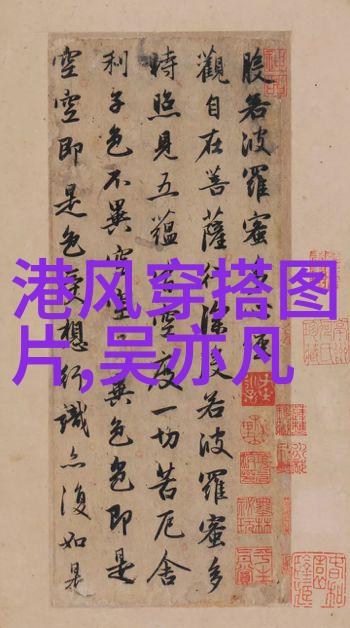 港风穿搭图
片,吴亦凡
般若波羅蜜多心經
觀自在菩薩行深般若波羅蜜多
時照見五蘊皆空度一切苦厄舍
利子色不異空空不異色色即是
空空即是色受想行識亦復如是